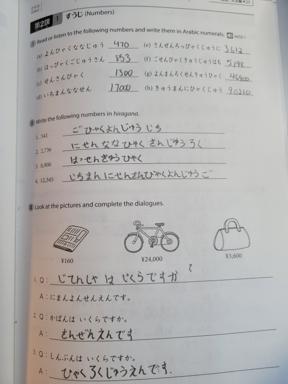 第2課 1 すうじ (Numbers)
Read or listen to the following numbers and write them in Arabic numerals.
(a) よんひゃくななじゅう 470
(b) はっぴゃくごじゅうさん 853
(c) せんさんびゃく 1300
(d) いちまんななせん 17000
(e) さんぜんろっぴゃくじゅうに 3612
(f) ごせんひゃくきゅうじゅうはち 5198
(g) よんまんろくせんきゅうひゃく 46900
(h) きゅうまんにひゃくじゅう 90210
Write the following numbers in hiragana.
1. 541 ごひゃくよんじゅういち
2. 2,736 にせんななひゃくさんじゅうろく
3. 8,900 はっせんきゅうひゃく
4. 12,345 いちまんにせんさんびゃくよんじゅうご
Look at the pictures and complete the dialogues.
¥160
¥24,000
¥3,600
1. Q: じてんしゃ は いくらですか
A: にまんよんせんえんです。
2. Q: かばんは いくらですか。
A: さんぜん えんです
3. Q: しんぶんは いくらですか。
A: ひゃくろくじゅうえんです.